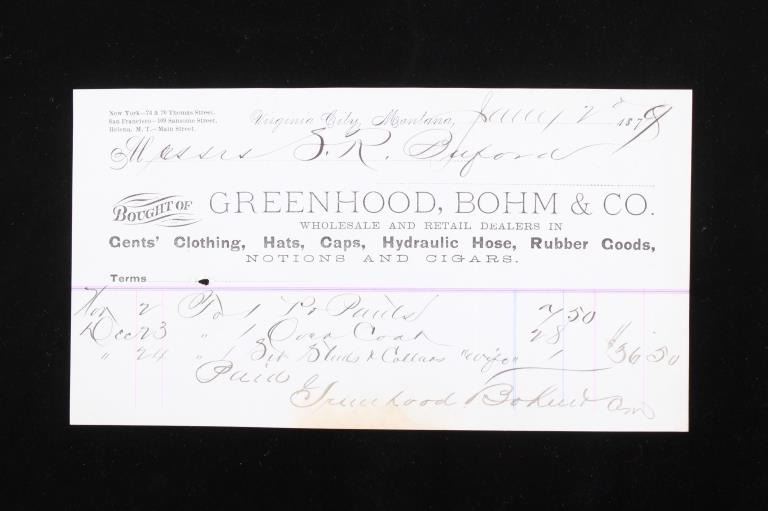 New York—74 & 76 Thomas Street.
San Francisco—109 Sansome Street.
Helena, M. T.—Main Street.
Virginia City, Montana, Jany 2nd 1879
Messrs S. R. Buford
BOUGHT OF GREENHOOD, BOHM & CO.
WHOLESALE AND RETAIL DEALERS IN
Gents' Clothing, Hats, Caps, Hydraulic Hose, Rubber Goods,
NOTIONS AND CIGARS.
Terms
Nov 2 To 1 Pr Pants 7 50
Dec 23 " 1 Over Coat 28
" 24 " 1 Set Studs & Collars "wife" 1 $36 50
Paid
Greenhood Bohm & Co